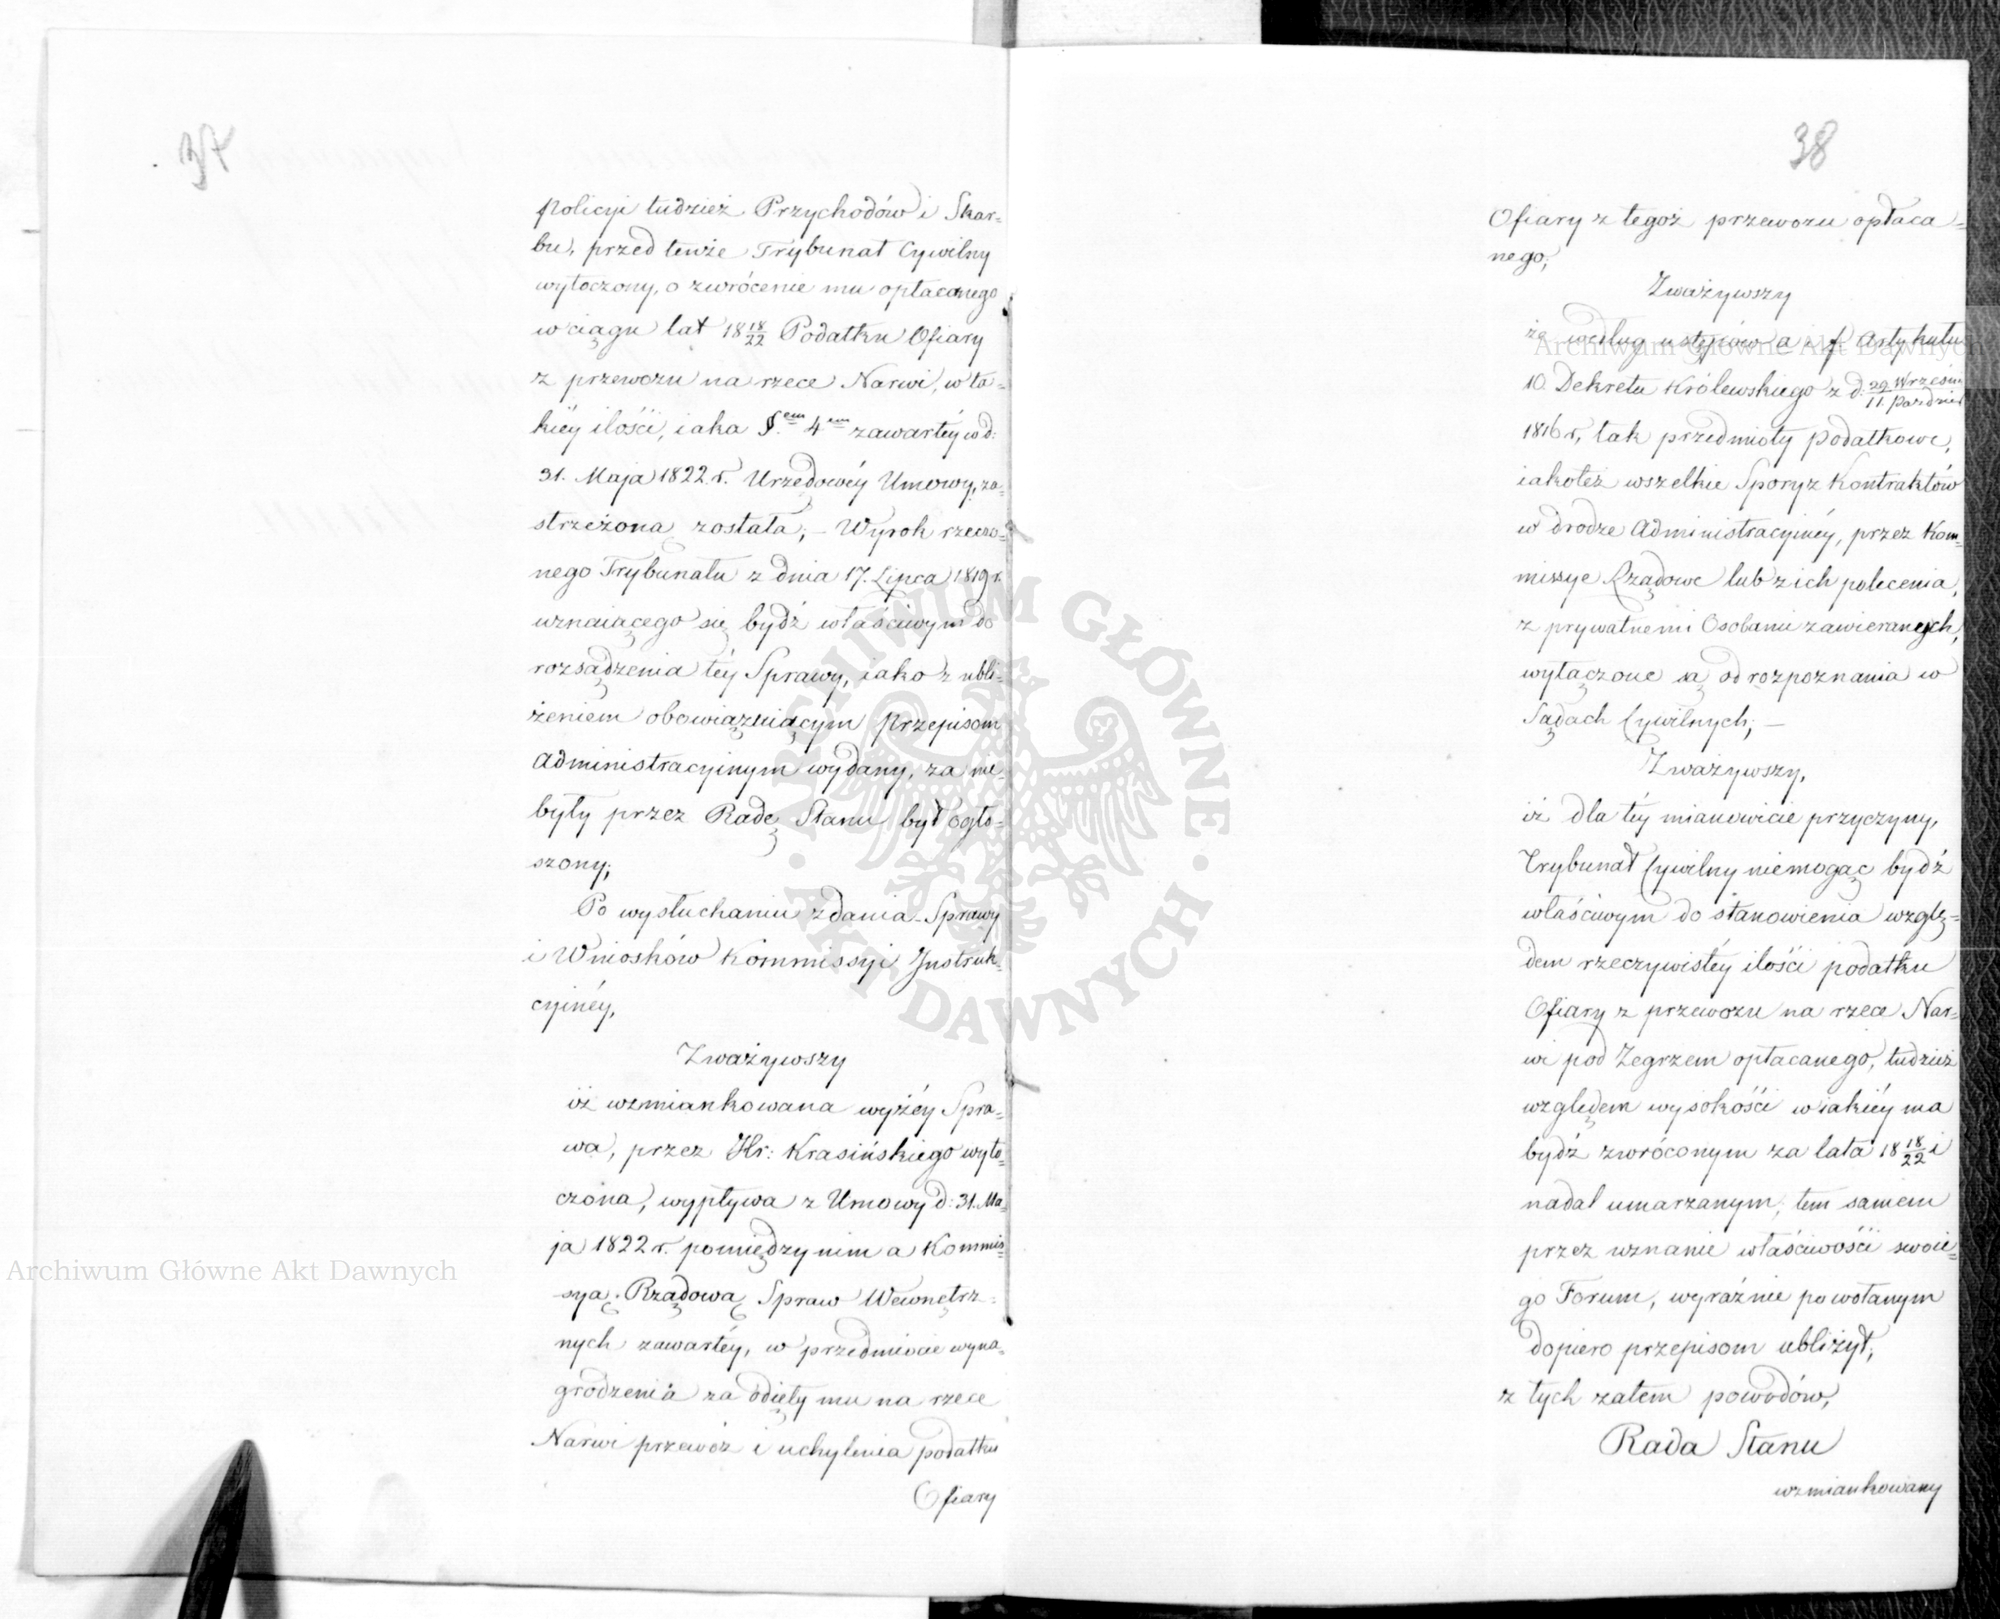 37
policyi tudzież Przychodów i Skar-
bu, przed tenże Trybunał Cywilny
wytoczony, o zwrócenie mu opłaconego
w ciągu lat 18 18/22 Podatku Ofiary
z przewozu na rzece Narwi, w ta-
kiéy ilości, iaka §.em 4em zawartéy w d:
31. Maja 1822. r. Urzędowéy Umowy, za-
strzeżoną została; – Wyrok rzeczo-
nego Trybunału z dnia 17. Lipca 1819 r.
uznaiącego się bydź właściwym do
rozsądzenia téy Sprawy, iako z ubli-
żeniem obowiązuiącym przepisom
Administracyinym wydany, za nie-
były przez Radę Stanu był ogło-
szony;
Po wysłuchaniu zdania Sprawy
i Wniosków Kommissyi Instruk-
cyinéy,
Zważywszy
iż wzmiankowana wyżéy Spra-
wa, przez Hr: Krasińskiego wyto-
czona, wypływa z Umowy d: 31. Ma-
ja 1822 r. pomiędzy nim a Kommis-
syą Rządową Spraw Wewnętrz-
nych zawartéy, w przedmiocie wyna-
grodzenia za odięty mu na rzece
Narwi przewóz i uchylenia podatku
Ofiary
38
Ofiary z tegoż przewozu opłaca-
nego;
Zważywszy
że według ustępów a i f Artykułu
10. Dekretu Królewskiego z d: 29 Wrześni/11. Paździer
1816 r, tak przedmioty podatkowe,
iakoteż wszelkie Spory z Kontraktów
w drodze Administracyinéy, przez Kom-
missye Rządowe lub z ich polecenia,
z prywatnemi Osobami zawieranych,
wyłączone są od rozpoznania w
Sądach Cywilnych; –
Zważywszy,
iż dla téy mianowicie przyczyny,
Trybunał Cywilny niemogąc bydź
właściwym do stanowienia wzglę-
dem rzeczywistéy ilości podatku
Ofiary z przewozu na rzece Nar-
wi pod Zegrzem opłacanego, tudzież
względem wysokości w iakiéy ma
bydź zwróconym za lata 18 18/22 i
nadal umarzanym; tem samem
przez uznanie właściwości swoie-
go Forum, wyraźnie powołanym
dopiero przepisom ubliżył;
z tych zatem powodów,
Rada Stanu
wzmiankowany
Archiwum Główne Akt Dawnych
Archiwum Główne Akt Dawnych
ARCHIWUM GŁÓWNE
AKT DAWNYCH